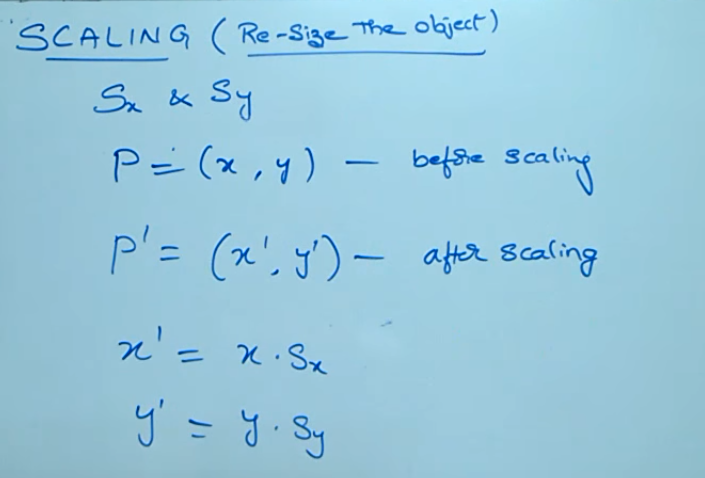 SCALING (Re-Size The object)
Sx & Sy
P = (x, y) — before scaling
P' = (x', y') — after scaling
x' = x . Sx
y' = y . Sy